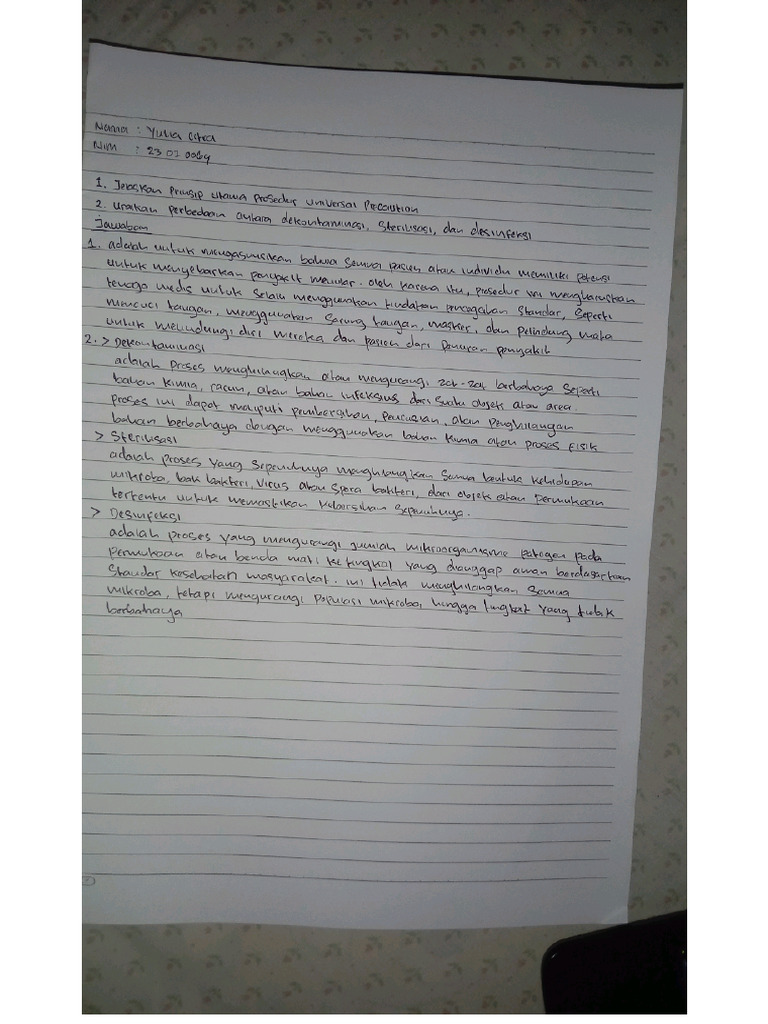 Nama : Yulia Citra
Nim : 23 01 0064
1. Jelaskan Prinsip utama prosedur universal Precaution
2. uraikan perbedaan antara dekontaminasi, sterilisasi, dan desinfeksi
Jawaban
1. adalah untuk mengasumsikan bahwa semua pasien atau individu memiliki potensi
untuk menyebarkan penyakit menular. oleh karena itu, prosedur ini mengharuskan
tenaga medis untuk selalu menggunakan tindakan pencegahan standar, seperti
mencuci tangan, menggunakan sarung tangan, masker, dan pelindung mata
untuk melindungi diri mereka dan pasien dari penyakit
2. > Dekontaminasi
adalah proses menghilangkan atau mengurangi zat-zat berbahaya seperti
bahan kimia, racun, atau bahan infeksius dari suatu objek atau area.
proses ini dapat meliputi pembersihan, pencucian, atau penghilangan
bahan berbahaya dengan menggunakan bahan kimia atau proses fisik
> Sterilisasi
adalah proses yang sepenuhnya menghilangkan semua bentuk kehidupan
mikroba, baik bakteri, virus atau spora bakteri, dari objek atau permukaan
tertentu untuk memastikan kebersihan sepenuhnya.
> Desinfeksi
adalah proses yang mengurangi jumlah mikroorganisme patogen pada
permukaan atau benda mati ke tingkat yang dianggap aman berdasarkan
standar kesehatan masyarakat. ini tidak menghilangkan semua
mikroba, tetapi mengurangi populasi mikroba hingga tingkat yang tidak
berbahaya